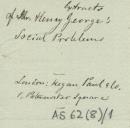 Extracts
of Mr Henry George's
Social Problems
London: Kegan Paul & Co.
1, Paternoster Square
AS 62(8)/1